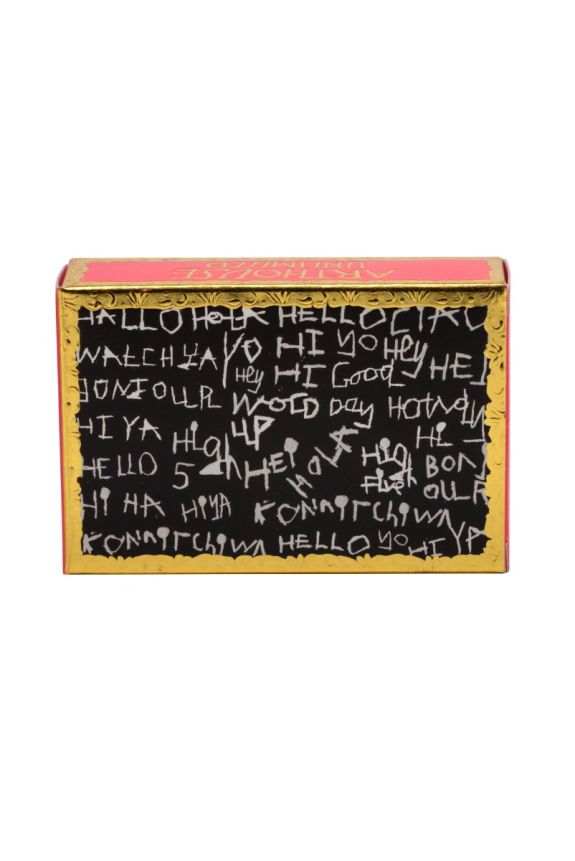 ARTHOUSE
UNLIMITED
HALLO HOLA HELLO CIAO
WATCH YA YO HI YO Hey HEI
BONJOUR Hey HI Good
WORD Day HOWDY
HI YA HigH UP HI
HELLO 5 HEI HOLA HIgH BONJ
FIVE OUR
HI HA HIYA KONNITCHIWA
KONNITCHIWA HELLO YO HI YA